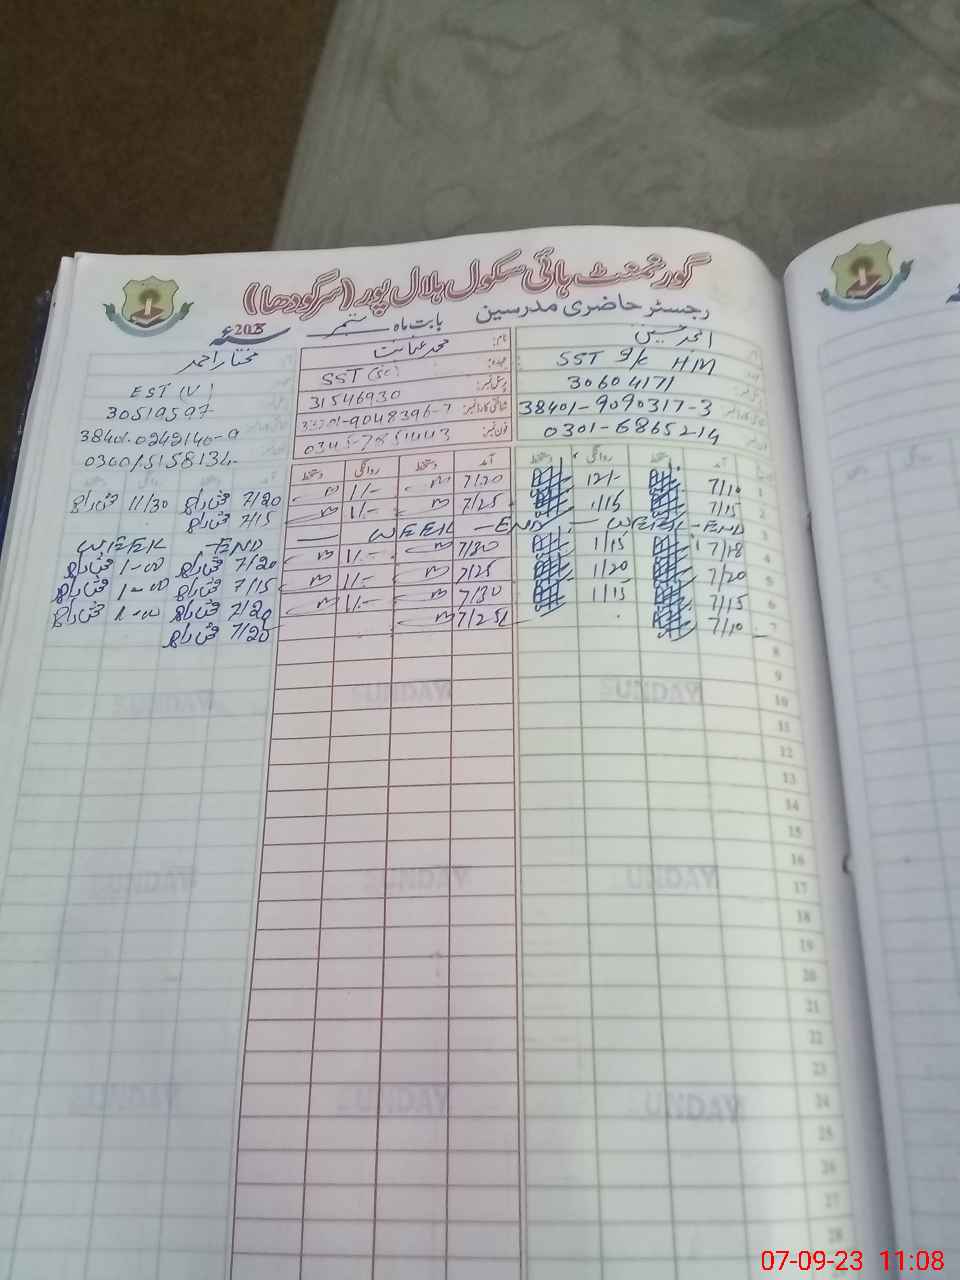 گورنمنٹ ہائی سکول ہلال پور (سرگودھا)
رجسٹر حاضری مدرسین بابت ماہ ستمبر
امجد حسین
SST I/C HM
30604171
38401-9090317-3
0301-6865214
آمد دستخط روانگی دستخط
1 7/10 12/-
2 7/15 1/15
3 WEEK-END
4 7/18 1/15
5 7/20 1/20
6 7/15 1/15
7 7/10
8
9
10 SUNDAY
11
12
13
14
15
16
17 SUNDAY
18
19
20
21
22
23
24 SUNDAY
25
26
27
28
نام: محمد عنایت
عہدہ: SST (SC)
پرسنل نمبر: 31546930
شناختی کارڈ نمبر:
فون نمبر:
آمد دستخط روانگی دستخط
7/20 1/-
7/25 1/-
WEEK-END
7/30 1/-
7/25 1/-
7/30 1/-
7/25
SUNDAY
SUNDAY
SUNDAY
مختار احمد
EST (V)
30519597
38401-0242140-9
03601515813
7/20 11/30
7/15
WEEK-END
7/20 1-00
7/15 1-00
7/20 1-00
7/20
SUNDAY
SUNDAY
SUNDAY
07-09-23 11:08